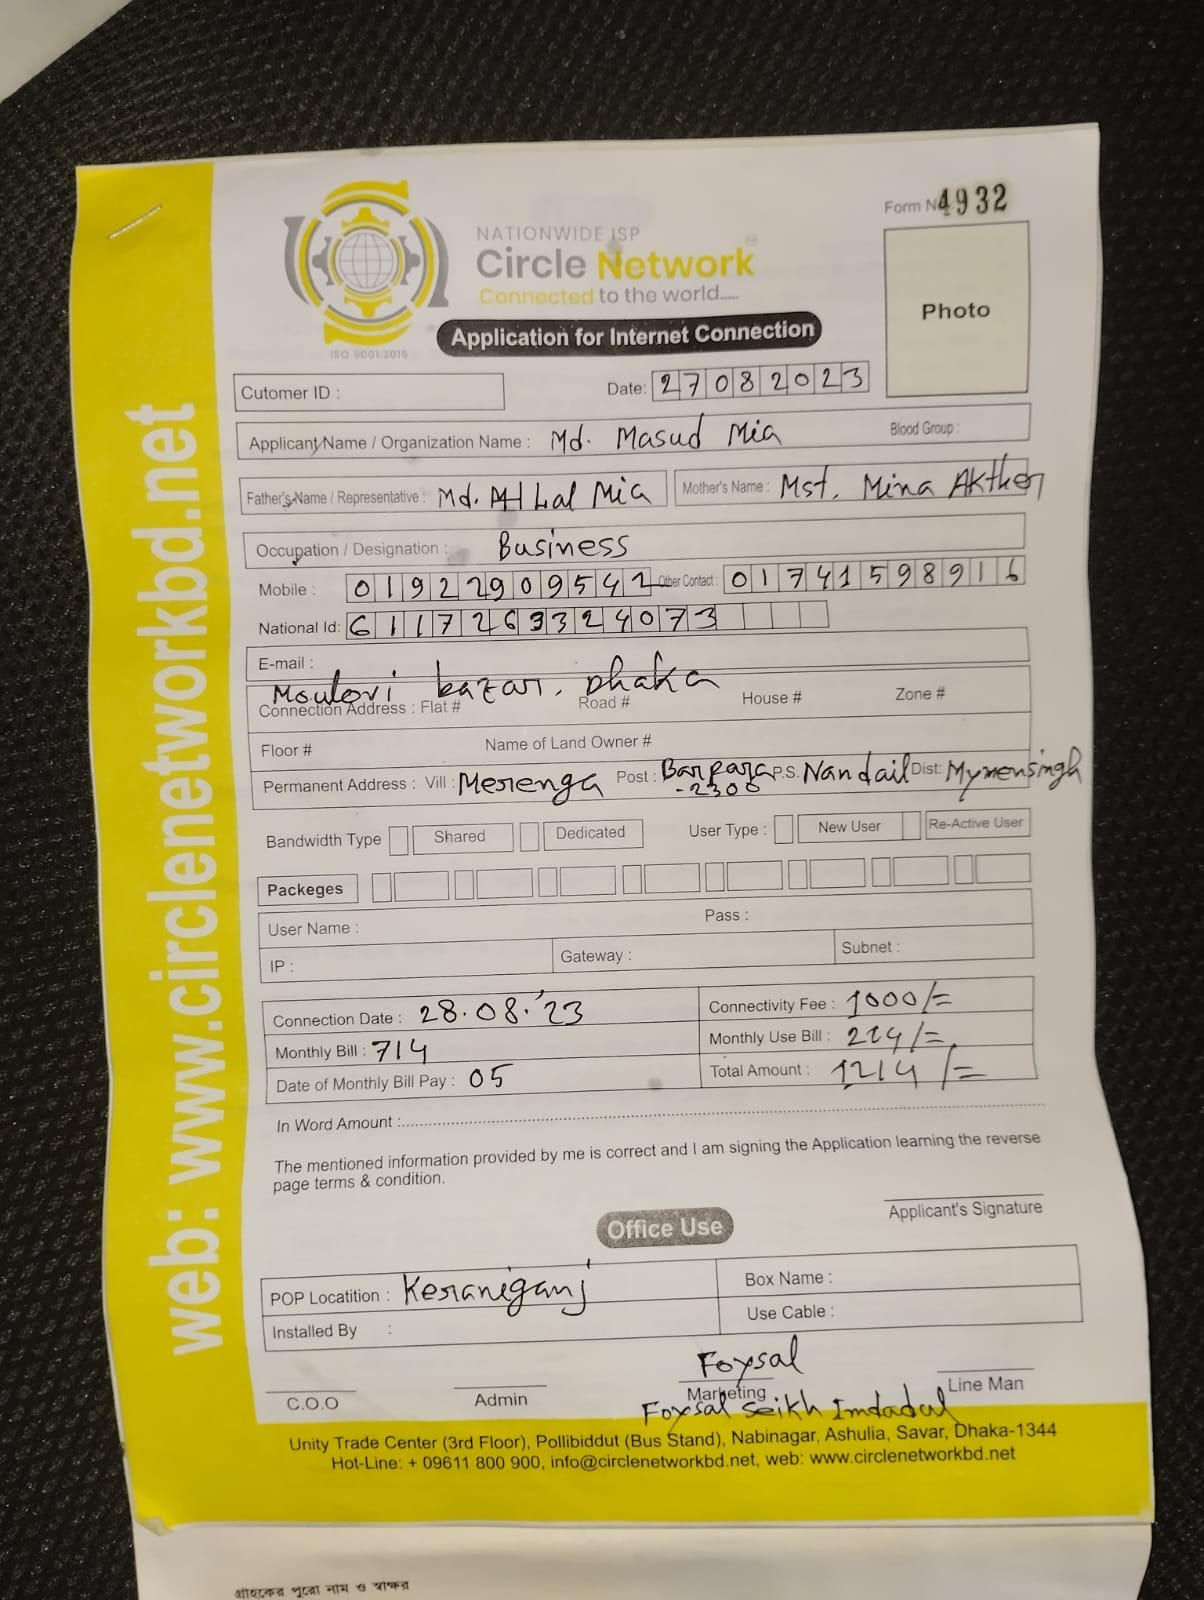 Form N 4932
NATIONWIDE ISP
Circle Network
Connected to the world.....
ISO 9001:2015
Application for Internet Connection
Photo
Cutomer ID :
Date: 27082023
Applicant Name / Organization Name : Md. Masud Mia
Blood Group :
Father's Name / Representative : Md. Lal Mia
Mother's Name : Mst. Mina Akther
Occupation / Designation : Business
Mobile : 01922909542 Other Contact : 01741598916
National Id: 6117263324073
E-mail :
Moulovi bazar, Dhaka
Connection Address : Flat # Road # House # Zone #
Floor # Name of Land Owner #
Permanent Address : Vill : Merenga Post : Barpara P.S. Nandail Dist: Mymensingh
-2300
Bandwidth Type Shared Dedicated User Type : New User Re-Active User
Packeges
User Name : Pass :
IP : Gateway : Subnet :
Connection Date : 28.08.'23
Connectivity Fee : 1000/=
Monthly Bill : 714
Monthly Use Bill : 214/=
Date of Monthly Bill Pay : 05
Total Amount : 1214/=
In Word Amount :
The mentioned information provided by me is correct and I am signing the Application learning the reverse
page terms & condition.
Applicant's Signature
Office Use
POP Locatition : Keraniganj
Box Name :
Installed By :
Use Cable :
Foysal
C.O.O Admin Marketing Line Man
Foysal Seikh Imdadul
Unity Trade Center (3rd Floor), Pollibiddut (Bus Stand), Nabinagar, Ashulia, Savar, Dhaka-1344
Hot-Line: + 09611 800 900, info@circlenetworkbd.net, web: www.circlenetworkbd.net
web: www.circlenetworkbd.net
গ্রাহকের পুরো নাম ও স্বাক্ষর